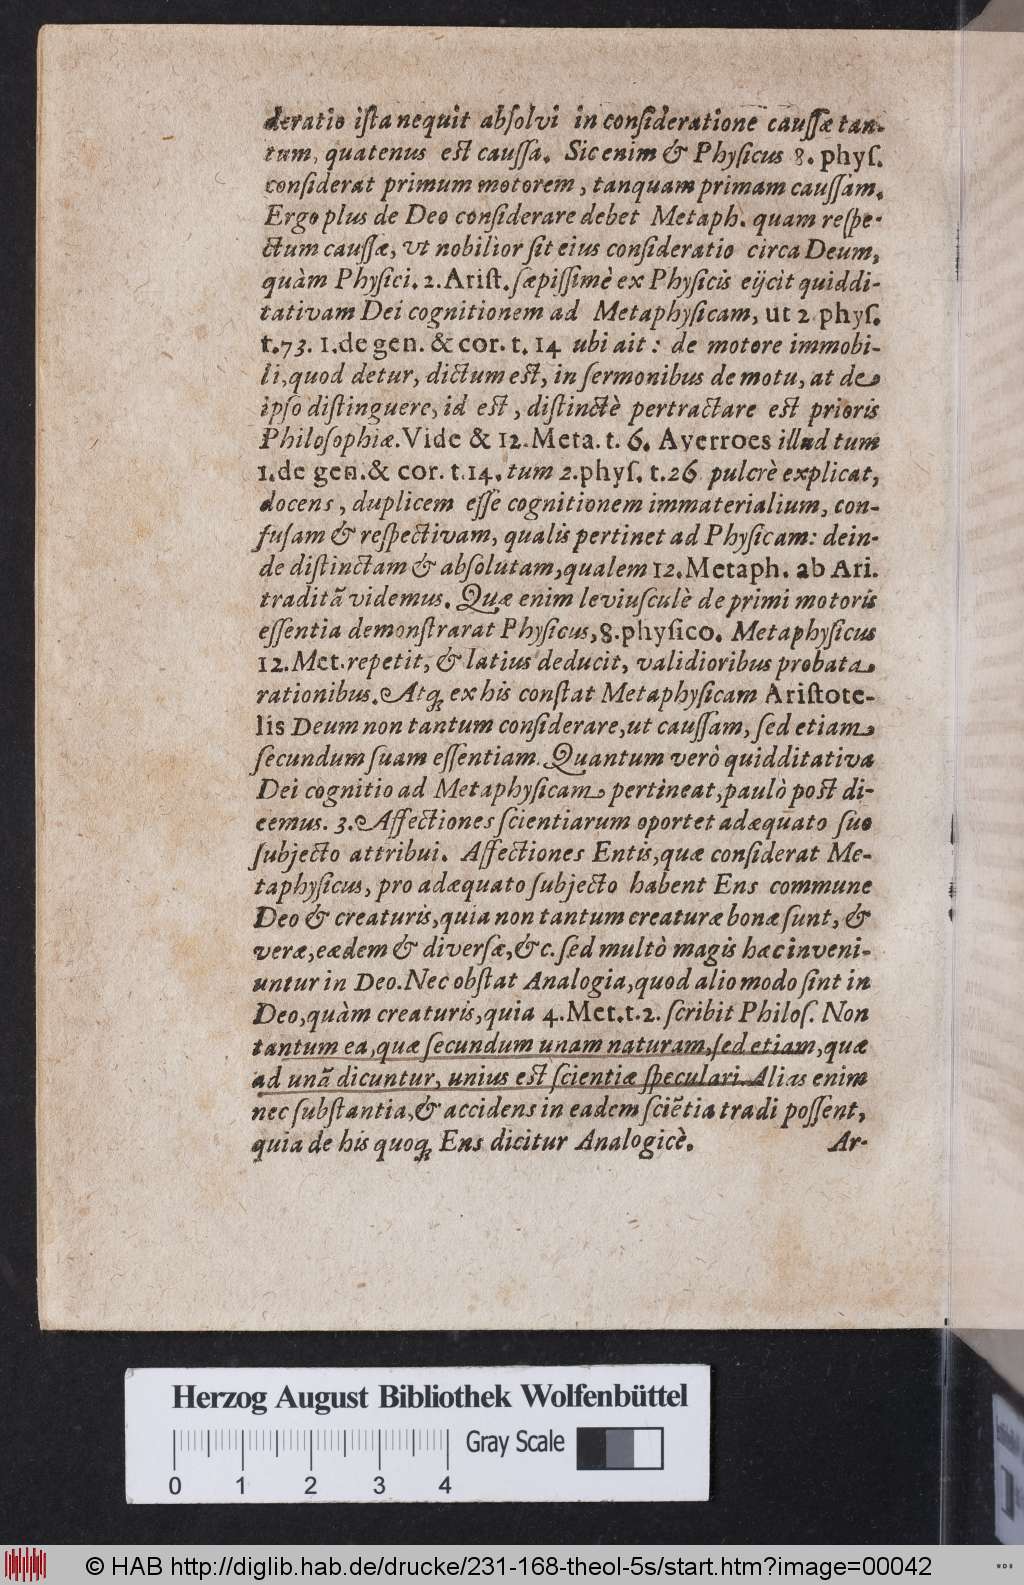 deratio iſta nequit abſolvi in conſideratione cauſſæ tan-
tum, quatenus eſt cauſſa. Sic enim & Phyſicus 8. phyſ.
conſiderat primum motorem, tanquam primam cauſſam.
Ergo plus de Deo conſiderare debet Metaph. quam reſpe-
ctum cauſſæ, vt nobilior ſit eius conſideratio circa Deum,
quàm Phyſici. 2. Ariſt. ſæpiſſimè ex Phyſicis eijcit quiddi-
tativam Dei cognitionem ad Metaphyſicam, ut 2 phyſ.
t. 73. 1. de gen. & cor. t. 14 ubi ait: de motore immobi-
li, quod detur, dictum eſt, in ſermonibus de motu, at de
ipſo diſtinguere, id eſt, diſtinctè pertractare eſt prioris
Philoſophiæ. Vide & 12. Meta. t. 6. Averroes illud tum
1. de gen. & cor. t. 14. tum 2. phyſ. t. 26 pulcrè explicat,
docens, duplicem eſſe cognitionem immaterialium, con-
fuſam & reſpectivam, qualis pertinet ad Phyſicam: dein-
de diſtinctam & abſolutam, qualem 12. Metaph. ab Ari.
traditā videmus. Quæ enim leviuſculè de primi motoris
eſſentia demonſtrarat Phyſicus, 8. phyſico. Metaphyſicus
12. Met. repetit, & latius deducit, validioribus probata
rationibus. Atq; ex his conſtat Metaphyſicam Ariſtote-
lis Deum non tantum conſiderare, ut cauſſam, ſed etiam
ſecundum ſuam eſſentiam. Quantum verò quidditativa
Dei cognitio ad Metaphyſicam pertineat, paulò poſt di-
cemus. 3. Affectiones ſcientiarum oportet adæquato ſuo
ſubjecto attribui. Affectiones Entis, quæ conſiderat Me-
taphyſicus, pro adæquato ſubjecto habent Ens commune
Deo & creaturis, quia non tantum creaturæ bonæ ſunt, &
veræ, eædem & diverſæ, &c. ſed multò magis hæc inveni-
untur in Deo. Nec obſtat Analogia, quod alio modo ſint in
Deo, quàm creaturis, quia 4. Met. t. 2. ſcribit Philoſ. Non
tantum ea, quæ ſecundum unam naturam, ſed etiam, quæ
ad unā dicuntur, unius eſt ſcientiæ ſpeculari. Alias enim
nec ſubſtantia, & accidens in eadem ſciētia tradi poſſent,
quia de his quoq; Ens dicitur Analogicè. Ar-
Herzog August Bibliothek Wolfenbüttel
Gray Scale
0 1 2 3 4
© HAB http://diglib.hab.de/drucke/231-168-theol-5s/start.htm?image=00042